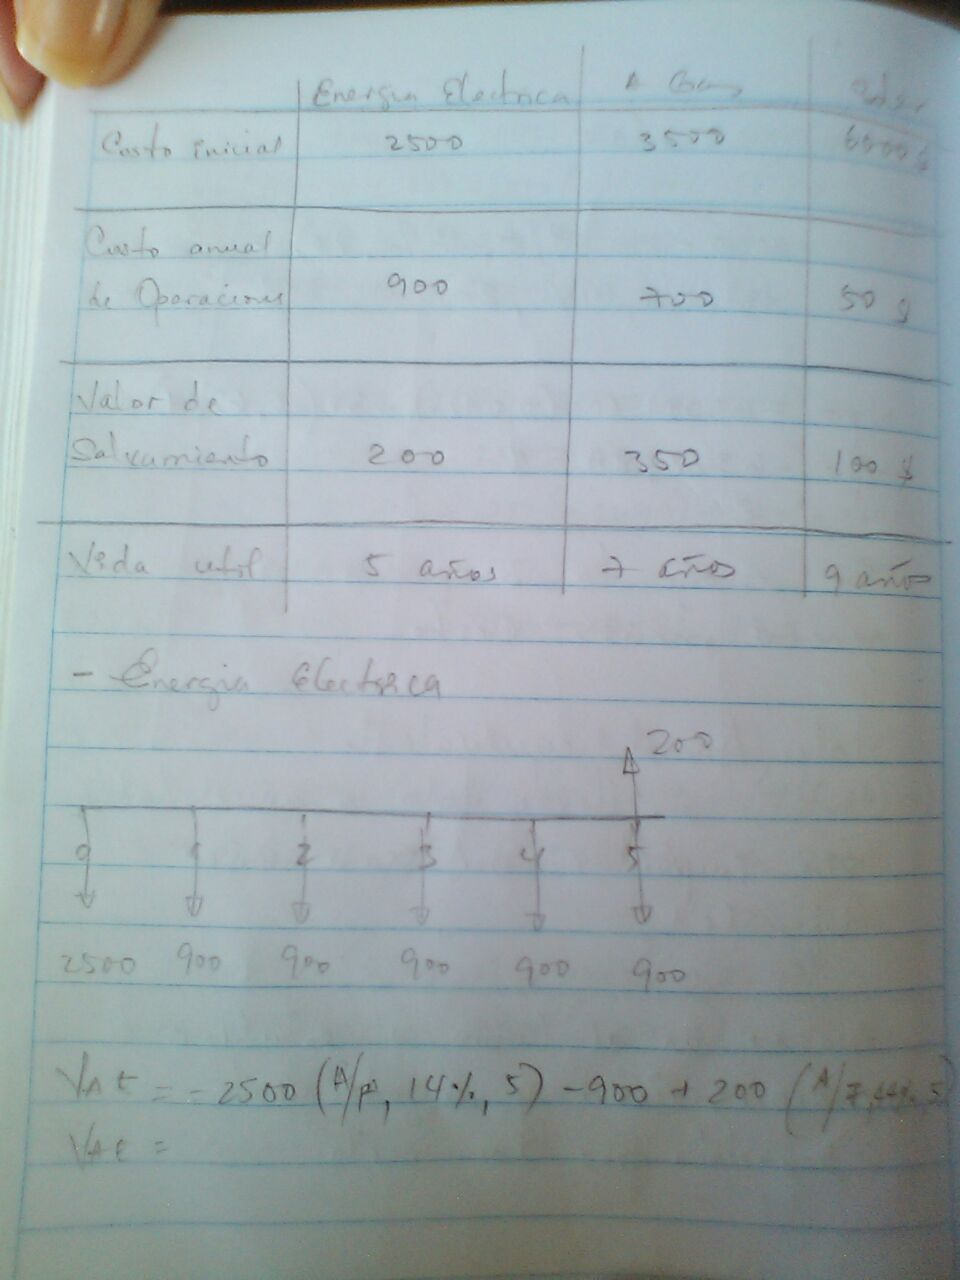 Energia Electrica A Gas
Costo inicial 2500 3500 6000 $
Costo anual
de Operaciones 900 700 50 $
Valor de
Salvamiento 200 350 100 $
Vida util 5 años 7 años 9 años
- Energia Electrica
200
0 1 2 3 4 5
2500 900 900 900 900 900
VAE = -2500 (A/P, 14%, 5) -900 + 200 (A/F, 14%, 5)
VAE =